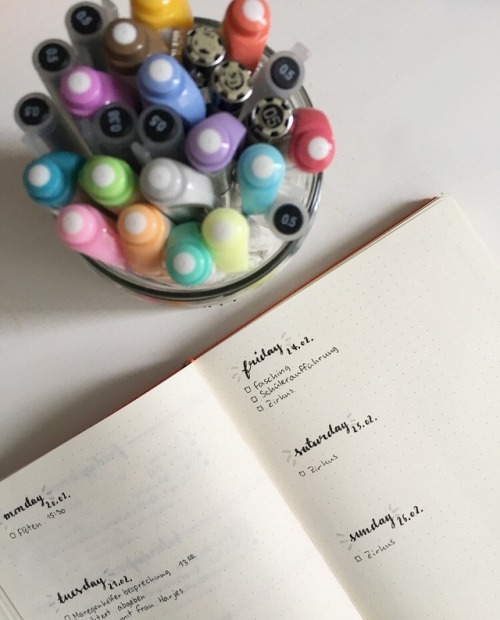 0.5
0.5
0.5
0.5
monday 20.02.
Flöten 15:30
tuesday 21.02.
Manegenhelferbesprechung 13:00
abgeben
mt Frau Harjes
friday 24.02.
Fasching
Schüleraufführung
Zirkus
saturday 25.02.
Zirkus
sunday 26.02.
Zirkus